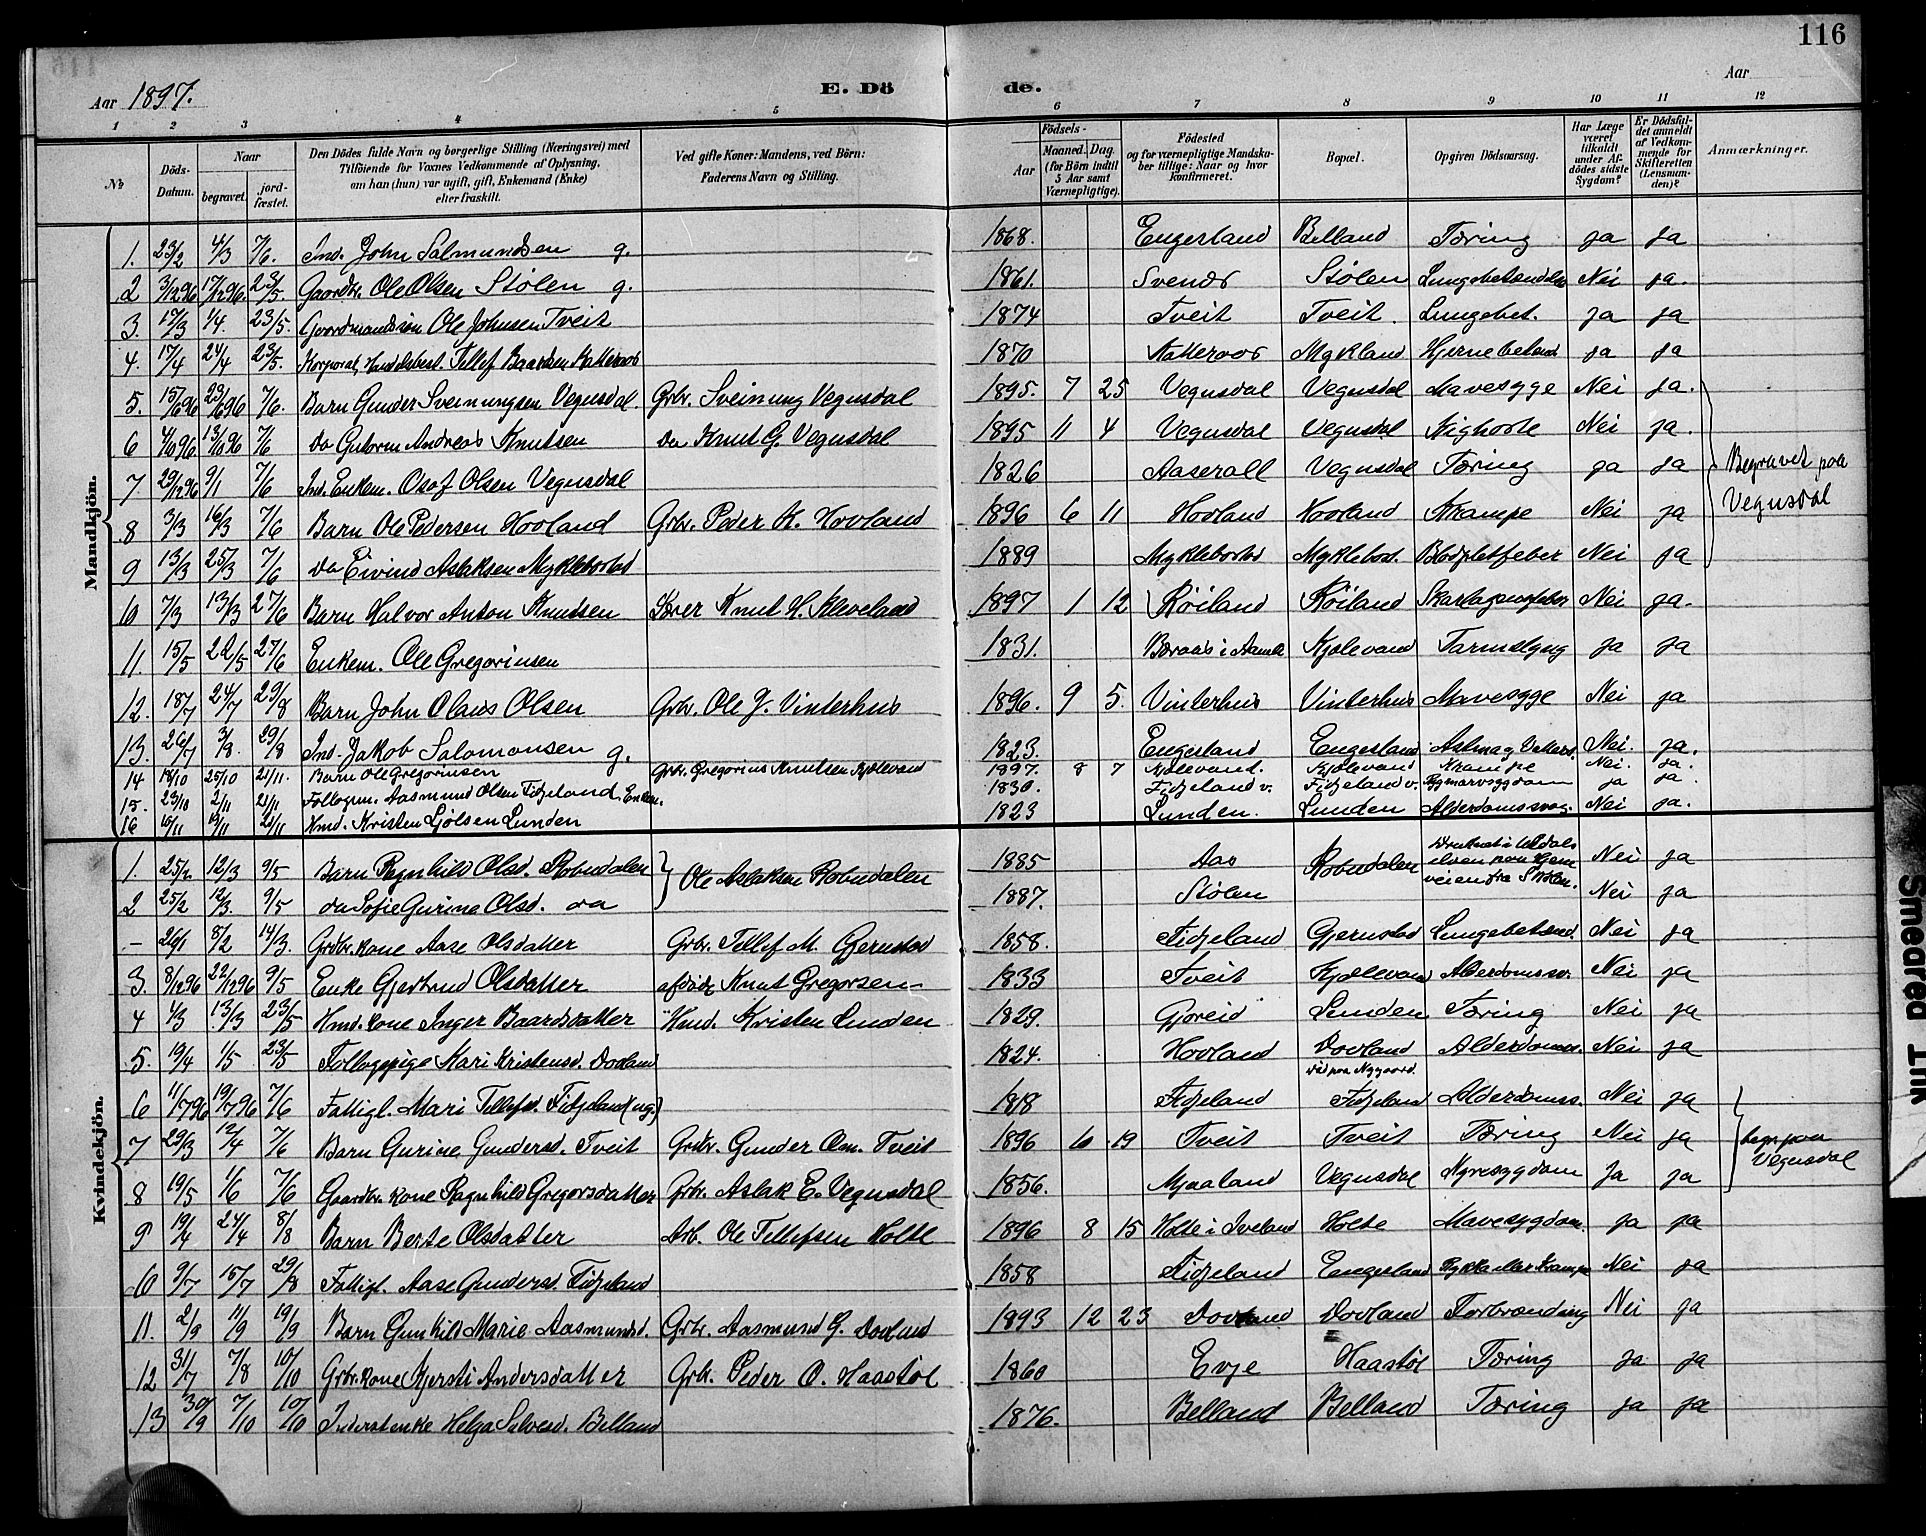 116
Aar 1897. E. Dö de. Aar
1 2 3 4 5 6 7 8 9 10 11 12
No Döds-Datum. Naar begravet. jord-fæstet. Den Dödes fulde Navn og borgerlige Stilling (Næringsvei) med Tilföiende for Voxnes Vedkommende af Oplysning, om han (hun) var ugift, gift, Enkemand (Enke) eller fraskilt. Ved gifte Koner: Mandens, ved Börn: Faderens Navn og Stilling. Födsels- Aar Maaned. Dag. (for Börn indtil 5 Aar samt Værnepligtige). Födested og for værnepligtige Mandska-ber tillige: Naar og hvor konfirmeret. Bopæl. Opgiven Dödsaarsag. Har Læge været tilkaldt under Af-dödes sidste Sygdom? Er Dödsfal-det anmeldt af Vedkom-mende for Skifteretten (Lensman-den)? Anmærkninger.
Mandkjön.
1. 23/2 4/3 7/6. Ind. John Salmundsen g. 1868. Engesland Belland Tæring ja ja
2 3/12 96 17/12 96. 23/5. Gaardbr. Ole Olsen Stölen g. 1861. Svenør Stölen Lungebetændelse Nei ja.
3. 17/3 1/4. 23/5. Gaardmandssön Ole Johnsen Tveit 1874 Tveit Tveit. Lungebet. ja ja
4. 17/4 24/4 23/5. Korporal, Tellef Baardsen 1870 Mykland Hjernebetænd ja ja
5. 15/6 96 23/6 96 7/6. Barn Gunder Sveinungsen Vegusdal. Grbr. Sveinung Vegusdal 1895. 7 25 Vegusdal Vegusdal Mavesyge Nei ja.
6 4/10 96 13/10 96 7/6 Do Gutorm Andreas Knutsen Do Knut G. Vegusdal 1895 11 4 Vegusdal Vegusdal Kighoste Nei ja.
7 29/12 96 9/1 7/6 Ind. Enkem. Olsen Vegusdal 1826 Aaserall Vegusdal Tæring ja ja Begravet paa Vegusdal
8 3/3 16/3 7/6 Barn Ole Pedersen Hovland Grbr. Peder K. Hovland 1896 6 11 Hovland Hovland Krampe Nei ja
9 13/3 25/3 7/6 Do Eivind Aslaksen Myklebostad 1889 Myklebostad Myklebost. Blodpletfeber Nei ja
10 7/3 13/3 27/6 Barn Halvor Anton Knutsen Lærer Knut H. Kleveland 1897 1 12 Röiland Röiland Skarlagensfeber Nei ja.
11. 15/5 22/5 27/6 Enkem. Ole Gregoriusen 1831. Kjølevand ja ja
12. 18/7 24/7 29/8 Barn John Olaus Olsen Grbr. Ole J. Vinterhus 1896. 9 5. Vinterhus Vinterhus Mavesyge Nei ja
13. 26/7 3/8. 29/8 Ind. Jakob Salomonsen g. 1823. Engesland Engesland Nei. ja.
14 18/10 25/10 21/11. Barn Ole Gregoriusen Grbr. Gregorius Knutsen Kjølevand 1897. 8 7 Kjølevand. Kjølevand Krampe Nei. ja.
15. 23/10 2/11 21/11 Follogm. Aasmund Olsen Fidjeland. Enkem. 1830. Fidjeland v. Fidjeland v. Rygmarvsygdom ja ja
16 15/11 19/11 21/11 Hmd. Kristen Ljölsen Lunden 1823 Lunden. Lunden Alderdomssvag. Nei ja.
Kvindekjön.
1. 25/2 12/3 9/5 Barn Ragnhild Olsd. Robudalen Ole Aslaksen Robudalen 1885 Aas Robudalen Druknet i elven paa hjem veien fra Skolen. Nei ja
2 25/2 12/3. 9/5 do Sofie Gurine Olsd. do 1887. Stölen Nei ja
- 26/1 8/2 14/3. Grdbr. kone Aase Olsdatter Grbr. Tellef M. Gjerustad 1858. Fidjeland Gjerustad Lungebetænd. Nei ja
3. 8/12 96 22/12 96 9/5 Enke Gjertrud Olsdatter afdöde Knut Gregorsen 1833 Tveit Kjølevand Alderdomssv. Nei ja
4 4/3 13/3 23/5 Hmd. kone Inger Baardsdatter Hmd. Kristen Lunden 1829. Gjoreid Lunden Tæring Nei ja
5. 19/4 1/5 23/5 Follogspige Mari Kristensd. Dovland 1824. Hovland Dovland död paa Nygaard. Alderdomss. Nei ja
6 11/7 96 19/7 96 7/6 Fattigl. Mari Tellefsd. Fidjeland (ug.) 1818 Fidjeland Fidjeland Alderdomss. Nei ja
7 29/3 12/4 7/6 Barn Gurine Gundersd. Tveit Grdbr. Gunder Osm. Tveit 1896 6 19 Tveit Tveit Tæring Nei ja begr. paa Vegusdal
8 19/5 1/6 7/6 Gaardbr. kone Ragnhild Gregorsdatter Grbr. Aslak E. Vegusdal 1856. Mjaaland Vegusdal Nyresygdom Ja ja
9 19/4 24/4 8/8 Barn Berte Olsdatter Arb. Ole Tellefsen Holte 1896 8 15 Holte i Iveland Holte Mavesygdom ja ja
10 9/7 15/7 29/8 Fattigl. Aase Gundersd. Fidjeland 1858 Fidjeland Engesland Nei ja
11. 2/9 11/9 19/9 Barn Gunhild Marie Aasmundsd. Grbr. Aasmund G. Dovland 1893 12 23 Dovland Dovland Forbrænding Nei ja
12 31/7 7/8 10/10 Grbr. kone Kjersti Andersdatter Grbr. Peder O. Haastöl 1860 Evje Haastöl Tæring ja ja
13 30/9 7/10 10/10 Inderstenke Helga Salvesd. Belland 1876. Belland Belland Tæring ja ja
Smeared Ink